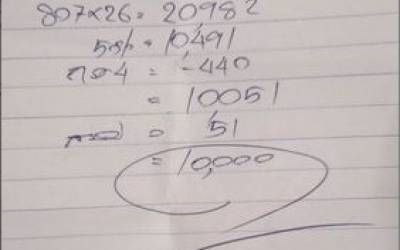 807x26= 20982
= 10491
= -440
= 10051
= 51
= 10,000